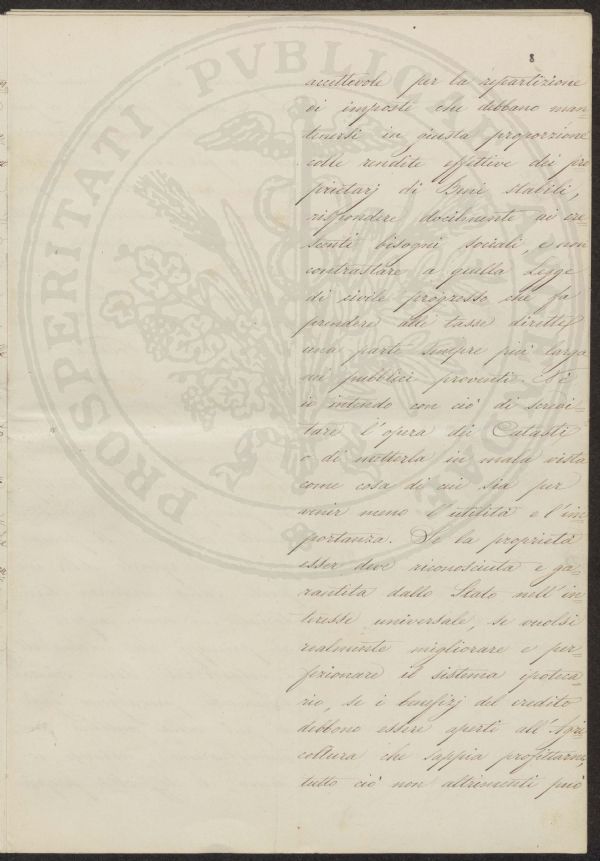 8
accettevole per la repartizione
di imposte che debbano man=
tenersi in giusta proporzione
colle rendite effettive dei pro
prietarj di Beni stabili,
rispondere docilmente ai cre=
scenti bisogni sociali, e non
contrastare a quella Legge
di civile progresso che fa
prendere alle tasse dirette
una parte sempre più larga
nei pubblici proventi. Nè
io intendo con ciò di scredi=
tare l'opera dei Catasti
o di metterla in mala vista
come cosa di cui sia per
venir meno l'utilità e l'im
portanza. Se la proprietà
esser deve riconosciuta e ga=
rantita dallo Stato nell'in=
teresse universale, se vuolsi
realmente migliorare e per=
fezionare il sistema ipoteca=
rio, se i benefizj del credito
debbono essere aperti all'Agri
coltura che sappia profittarne,
tutto ciò non altrimenti può
PROSPERITATI PVBLICAE